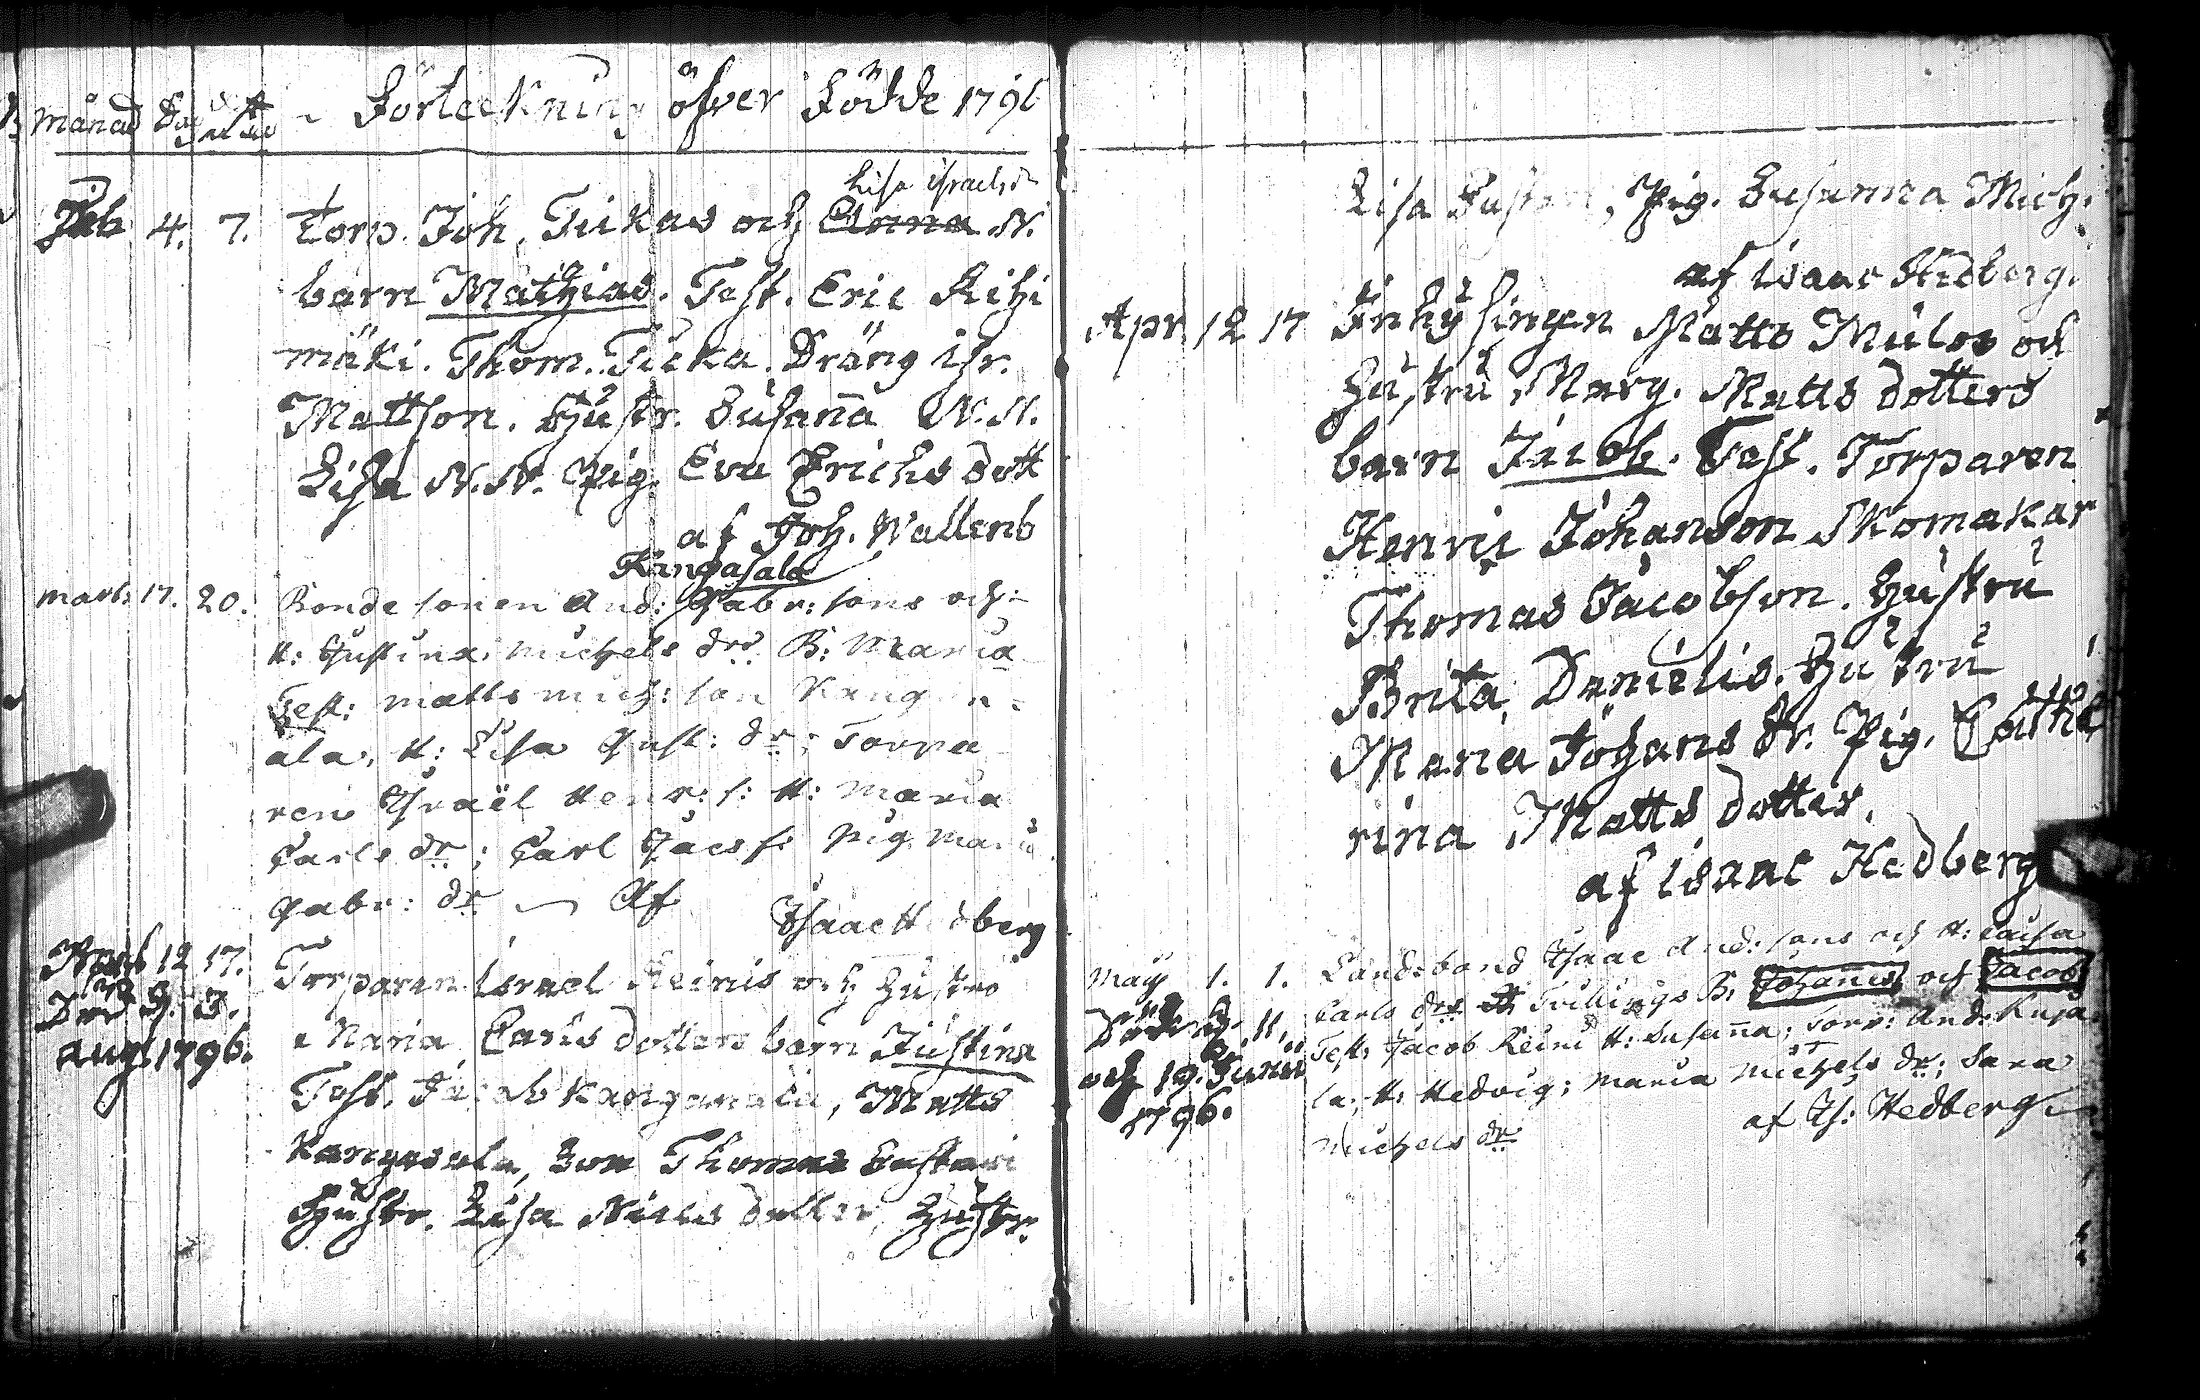 Månad Dag
Förteckning öfver Födde 1796
Lisa Israels dr
Feb 4. 7. Torp. Joh. Tukas och Anna N.
barn Mathias. Test. Eric Rihi
mäki. Thom. Tuka. Dräng Isr.
Mattson. Hustr. Susanna N.N.
Lisa N.N. Pig. Eva Erichs dott
af Joh. Wallenb
Kangasala
Mart: 17. 20. Bonde sonen And: Gabr: sons och
H: Justina Michels drs B: Maria
Test: Matts Mich: son Kang
ala, H: Lisa Gust: dr; Torpa
ren Israël Henr: s: H: Maria
Carls dr; Carl Jacs s: Pig Maria
Gabr: dr Af Isaac Hedberg
12 17. Torparen Israel Heinis och Hustro
Död d. 3. Maria Carls dotters barn Justina
Aug. 1796. Test. Jacob Kangasala, Matts
Kangasala, Son Thomas
Hustr. Lisa Niels dotter, Hustr.
Lisa, Pig. Susanna Mich.
af Isaac Hedberg.
Apr. 12 17 Inhysingen Matts Mulos och
Hustru Marg. Matts dotters
barn Jacob. Test. Torparen
Henric Johanson Skomakar
Thomas Jacobson. Hustru
Brita Danielis. Hustru
Maria Johans dr. Pig. Catha
rina Matts dotter.
af Isaac Hedberg
May 1. 1. Landsbond Isaac And: sons och H: Caisa
Carls drs Tvillings B: Johannes och Jacob
Död d. 11. Test: Jacob Reini H: Susanna; Torp: And: Kuja
och 19. Junii la; H: Hedvig; Maria Michels dr; Sara
1796. Michels dr
af Is: Hedberg